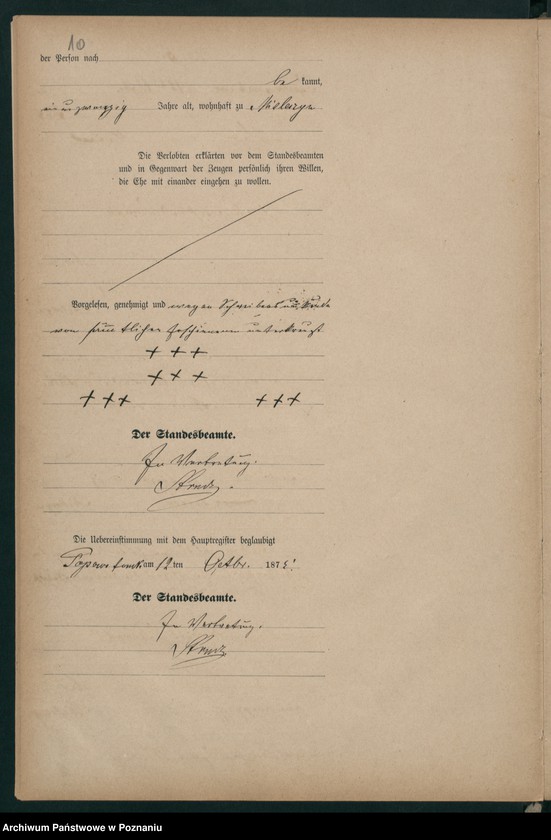 10
der Person nach
be kannt,
Jahre alt, wohnhaft zu
Die Verlobten erklärten vor dem Standesbeamten
und in Gegenwart der Zeugen persönlich ihren Willen,
die Ehe mit einander eingehen zu wollen.
Vorgelesen, genehmigt und wegen Schreibensunkunde
von sämtlichen Erschienenen unterkreuzt
+ + +
+ + +
+ + + + + +
Der Standesbeamte.
In Vertretung.
Die Uebereinstimmung mit dem Hauptregister beglaubigt
am 12 ten Octbr. 1875.
Der Standesbeamte.
In Vertretung.
Archiwum Państwowe w Poznaniu